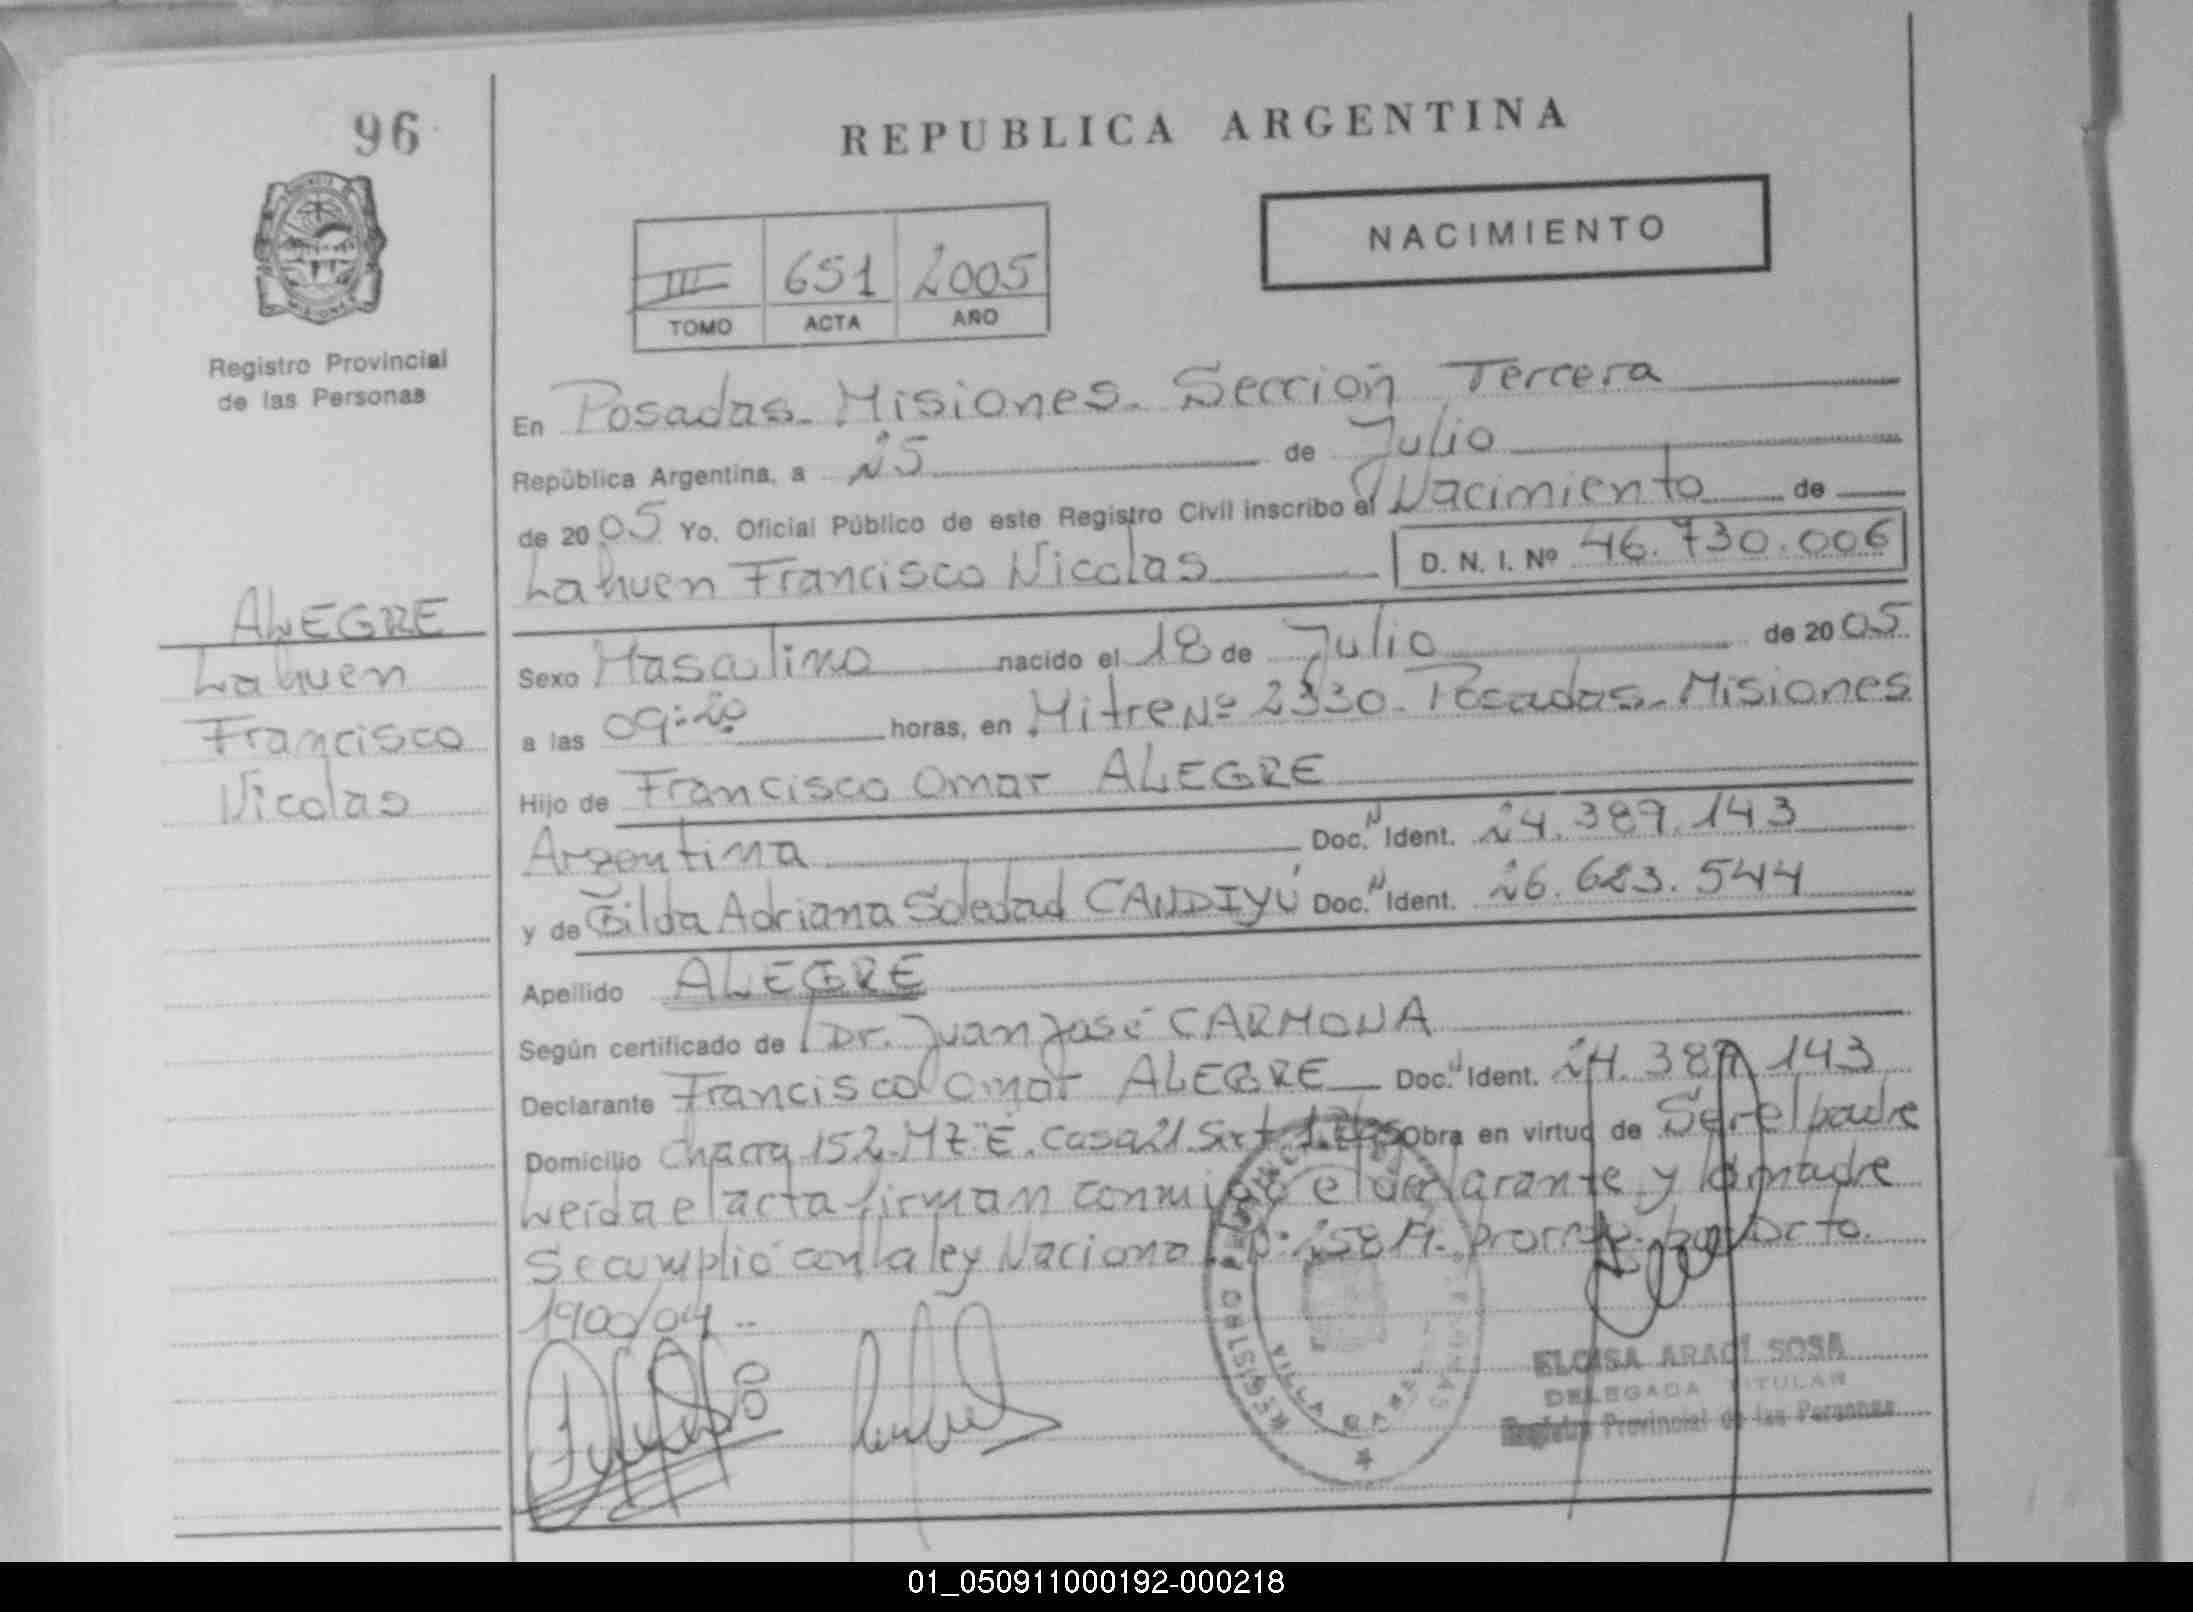 96
REPUBLICA ARGENTINA
NACIMIENTO
III 651 2005
TOMO ACTA AÑO
Registro Provincial
de las Personas
En Posadas - Misiones - Sección Tercera
República Argentina, a 25 de Julio
de 2005 Yo, Oficial Público de este Registro Civil inscribo el Nacimiento de
Lahuen Francisco Nicolas D. N. I. Nº 46.730.006
ALEGRE
Lahuen
Francisco
Nicolas
Sexo Masculino nacido el 18 de Julio de 2005
a las 09:20 horas, en Mitre Nº 2330 - Posadas - Misiones
Hijo de Francisco Omar ALEGRE
Argentina Doc. N Ident. 24.389.143
y de Gilda Adriana Soledad CANDIYÚ Doc. N Ident. 26.623.544
Apellido ALEGRE
Según certificado de Dr. Juan José CARMONA
Declarante Francisco Omar ALEGRE Doc. N Ident. 24.389.143
Domicilio Chacra 152. MZ "E". Casa 21. Obra en virtud de Ser el padre
Leída el acta firman conmigo el declarante y la madre
Se cumplió con la ley Nacional por Dcto.
1900/04 ..
REGISTRO
VILLA
ELOISA ARACÍ SOSA
DELEGADA TITULAR
Registro Provincial de las Personas
01_050911000192-000218